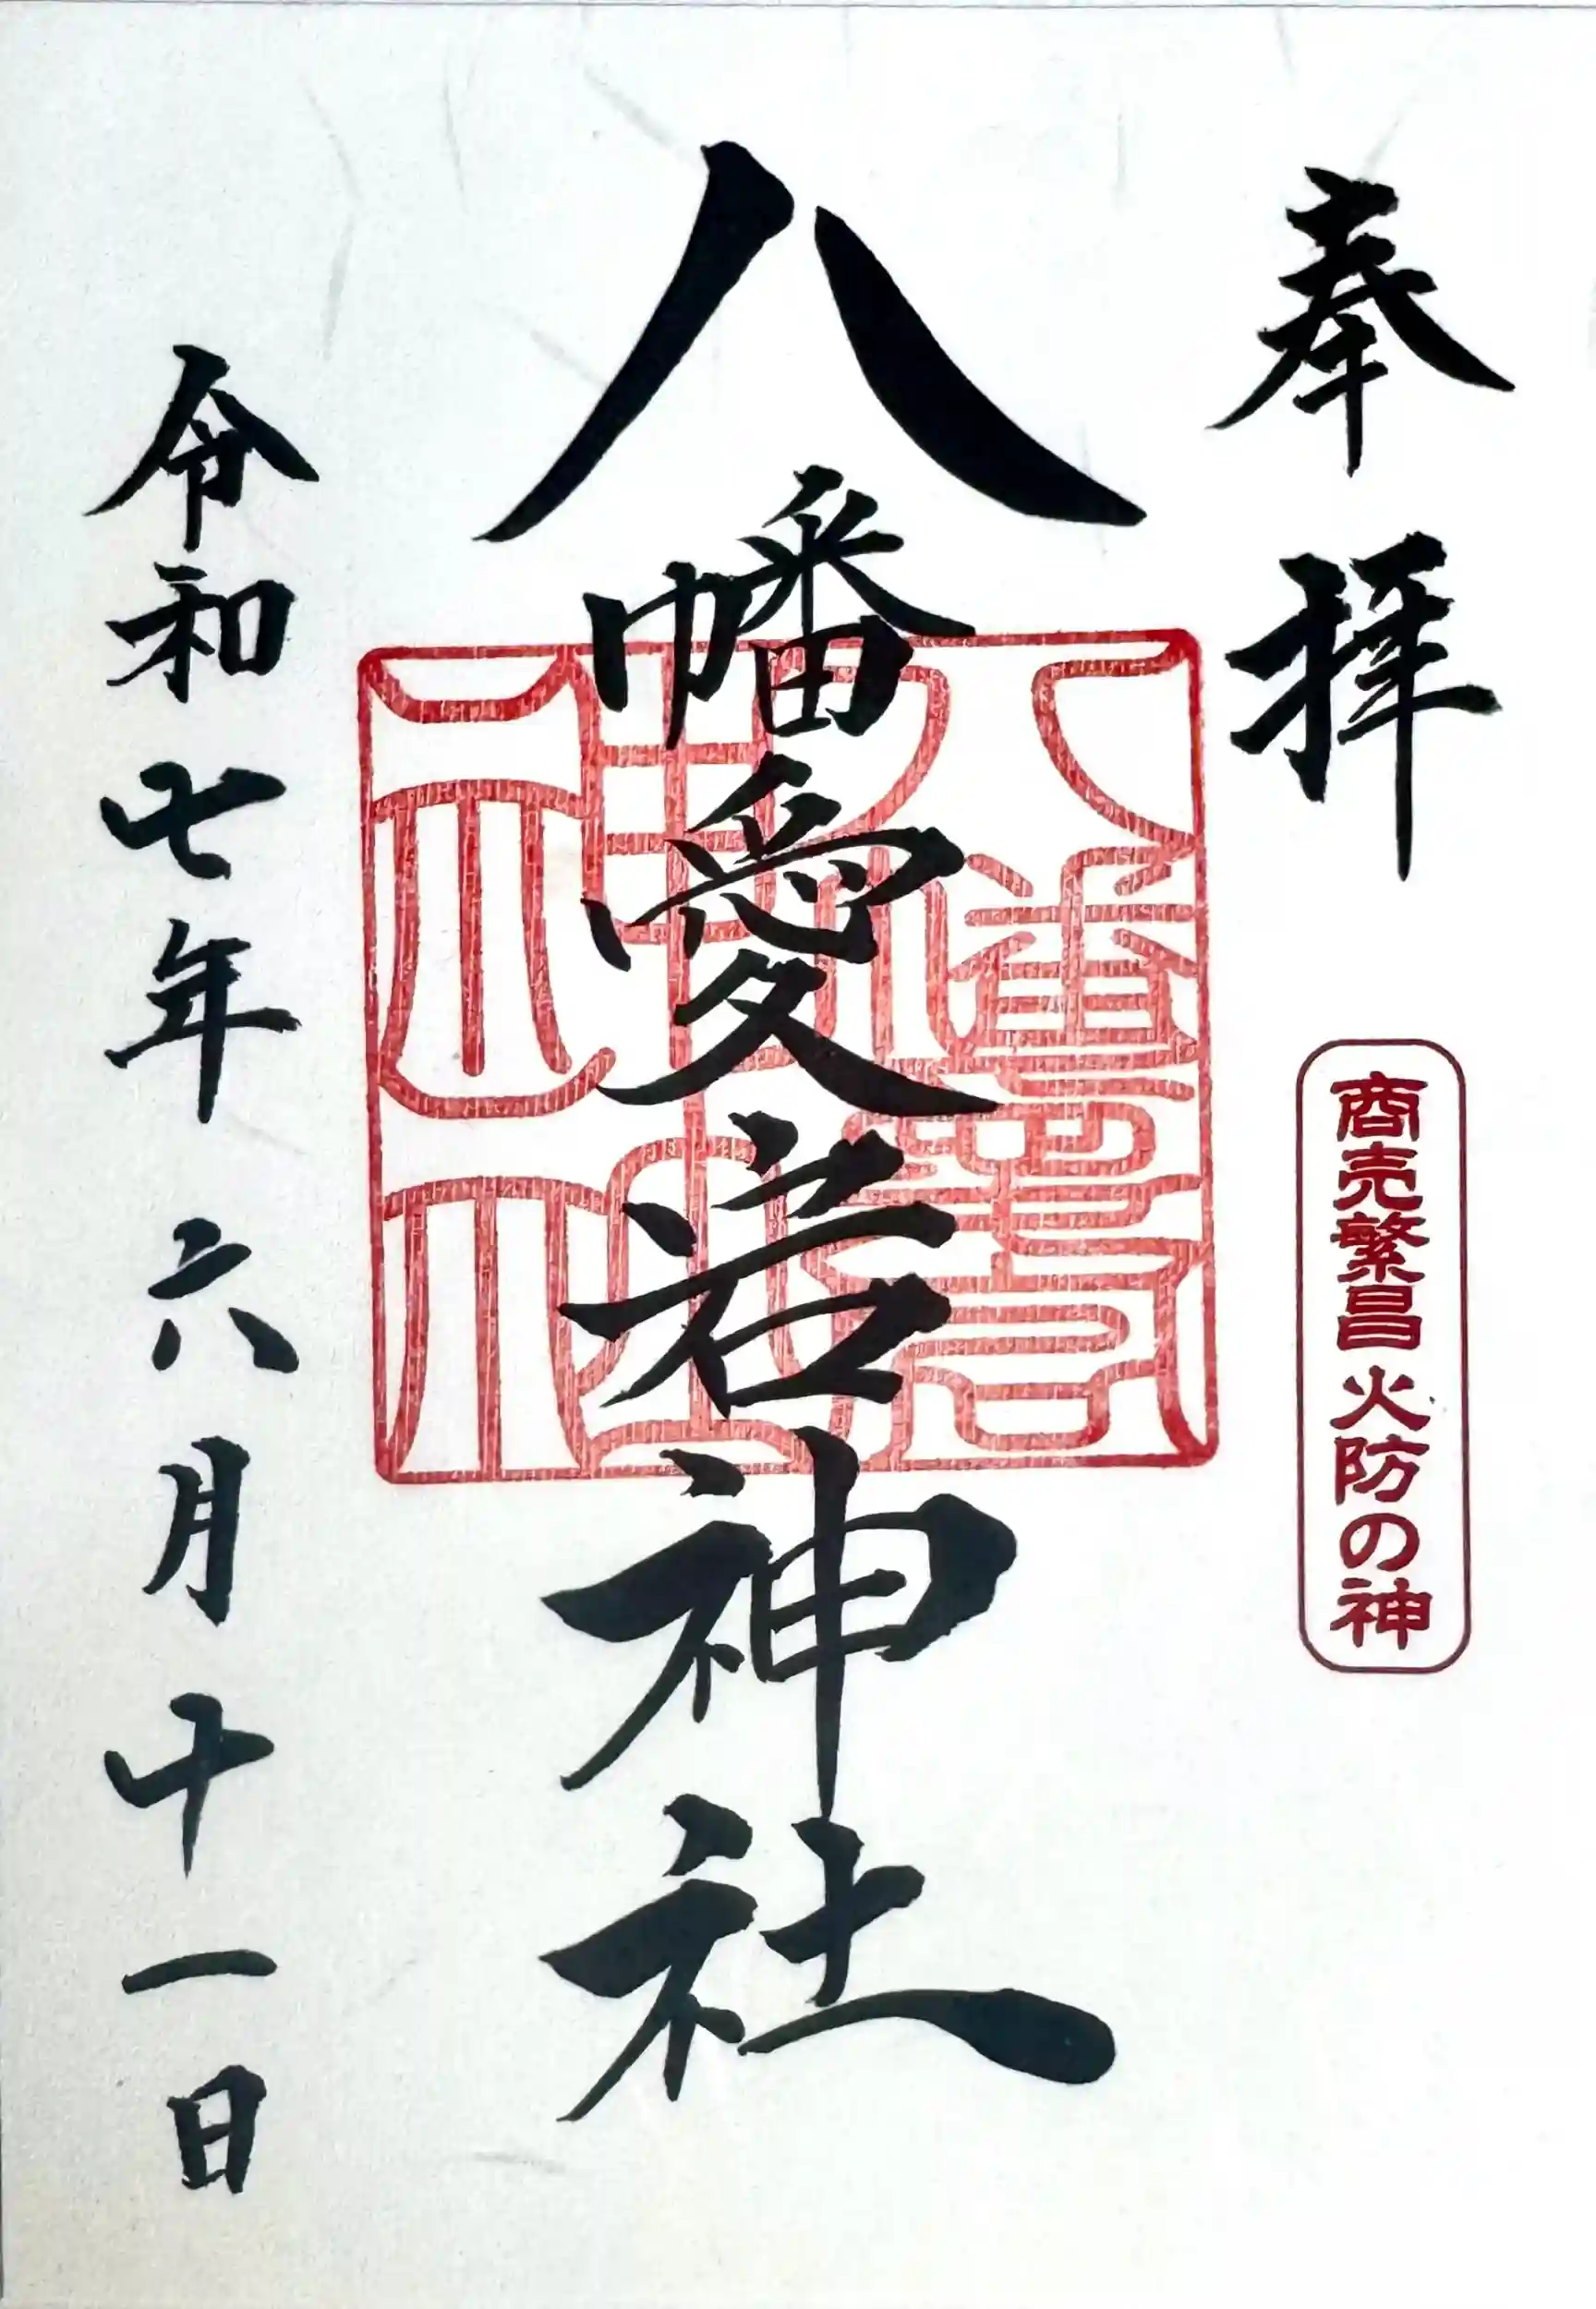 奉拝
商売繁昌 火防の神
八幡愛宕神社
令和七年六月十一日